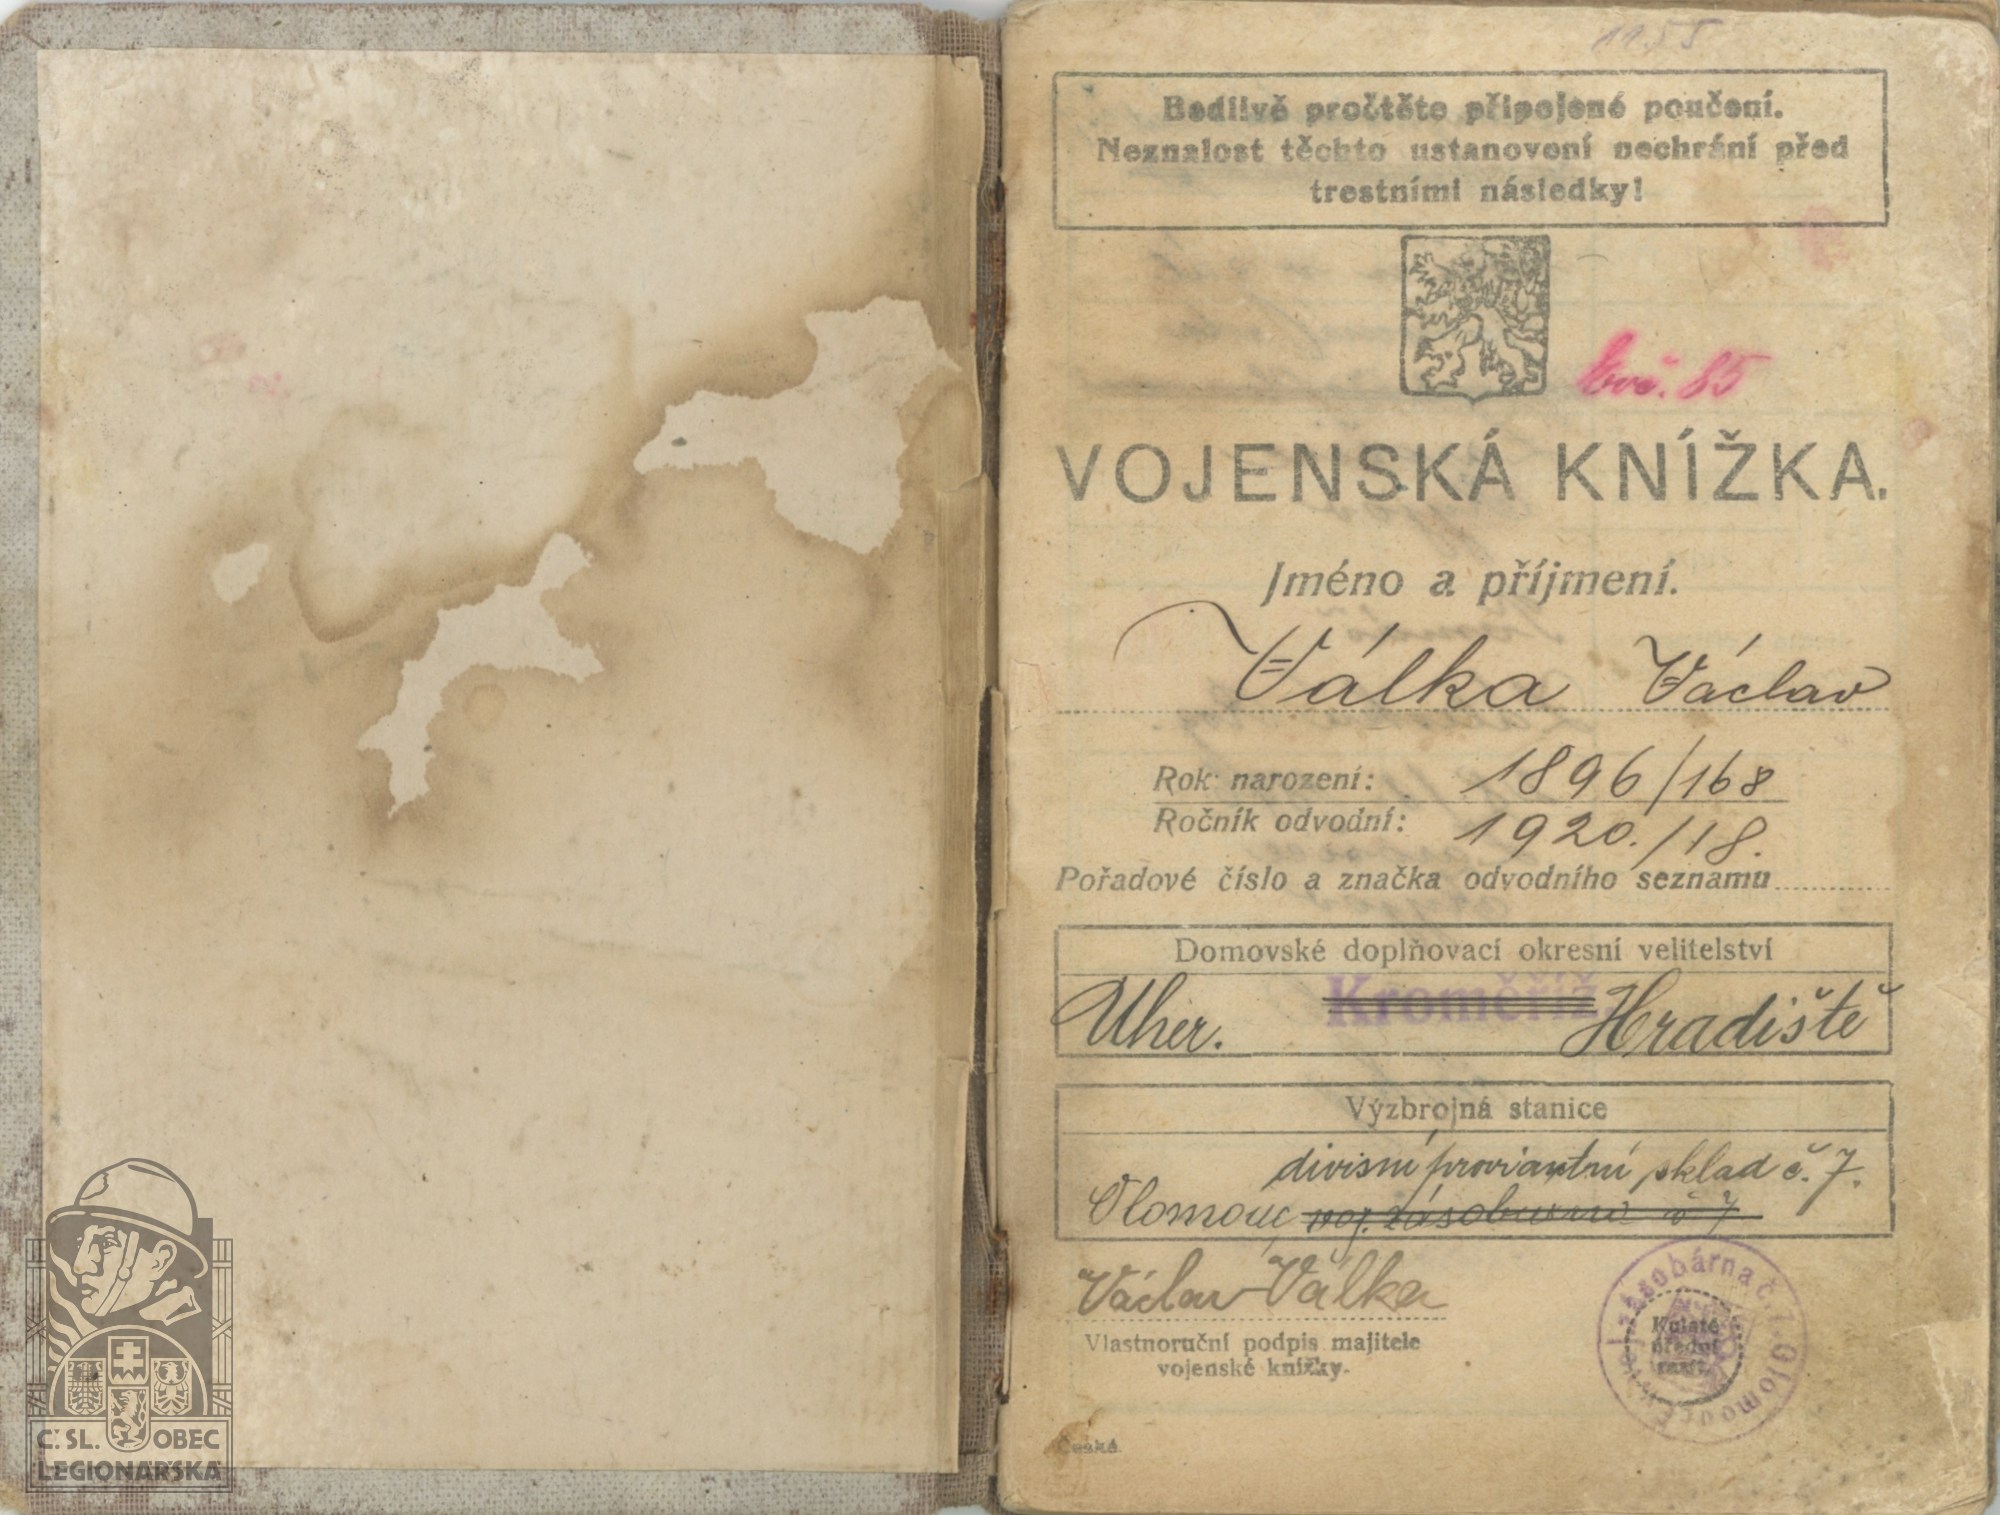 11.55
Bedlivě pročtěte připojené poučení.
Neznalost těchto ustanovení nechrání před
trestními následky!
Evč. 85
VOJENSKÁ KNÍŽKA.
Jméno a příjmení.
Válka Václav
Rok narození: 1896/168
Ročník odvodní: 1920./18.
Pořadové číslo a značka odvodního seznamu
Domovské doplňovací okresní velitelství
Kroměříž
Uher. Hradiště
Výzbrojná stanice
divisní proviantní sklad č. 7.
Olomouc voj. zásobárna č 7
Václav Válka
Vlastnoruční podpis majitele
vojenské knížky.
zásobárna č. 7. Olomouc
Kulaté
úřední
razít.
České.
Č. SL. OBEC
LEGIONÁŘSKÁ